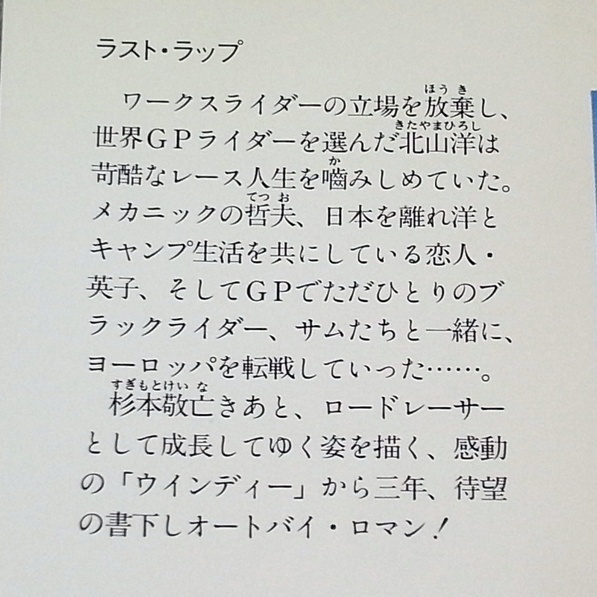 ラスト・ラップ
ワークスライダーの立場を放棄し、
世界GPライダーを選んだ北山洋は
苛酷なレース人生を嚙みしめていた。
メカニックの哲夫、日本を離れ洋と
キャンプ生活を共にしている恋人・
英子、そしてGPでただひとりのブ
ラックライダー、サムたちと一緒に、
ヨーロッパを転戦していった……。
杉本敬亡きあと、ロードレーサー
として成長してゆく姿を描く、感動
の「ウインディー」から三年、待望
の書下しオートバイ・ロマン!